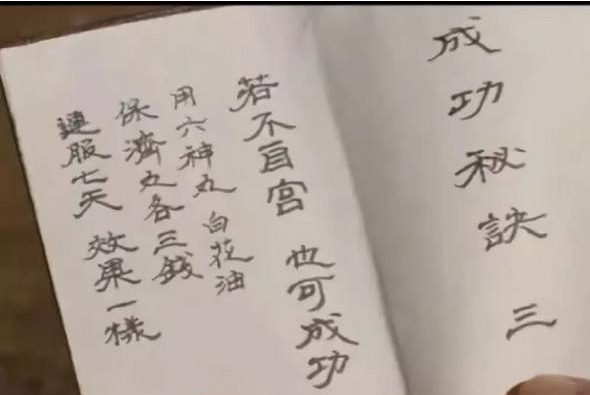 成功秘訣三
若不自宮 也可成功
用六神丸 白花油
保濟丸各三錢
連服七天 效果一樣